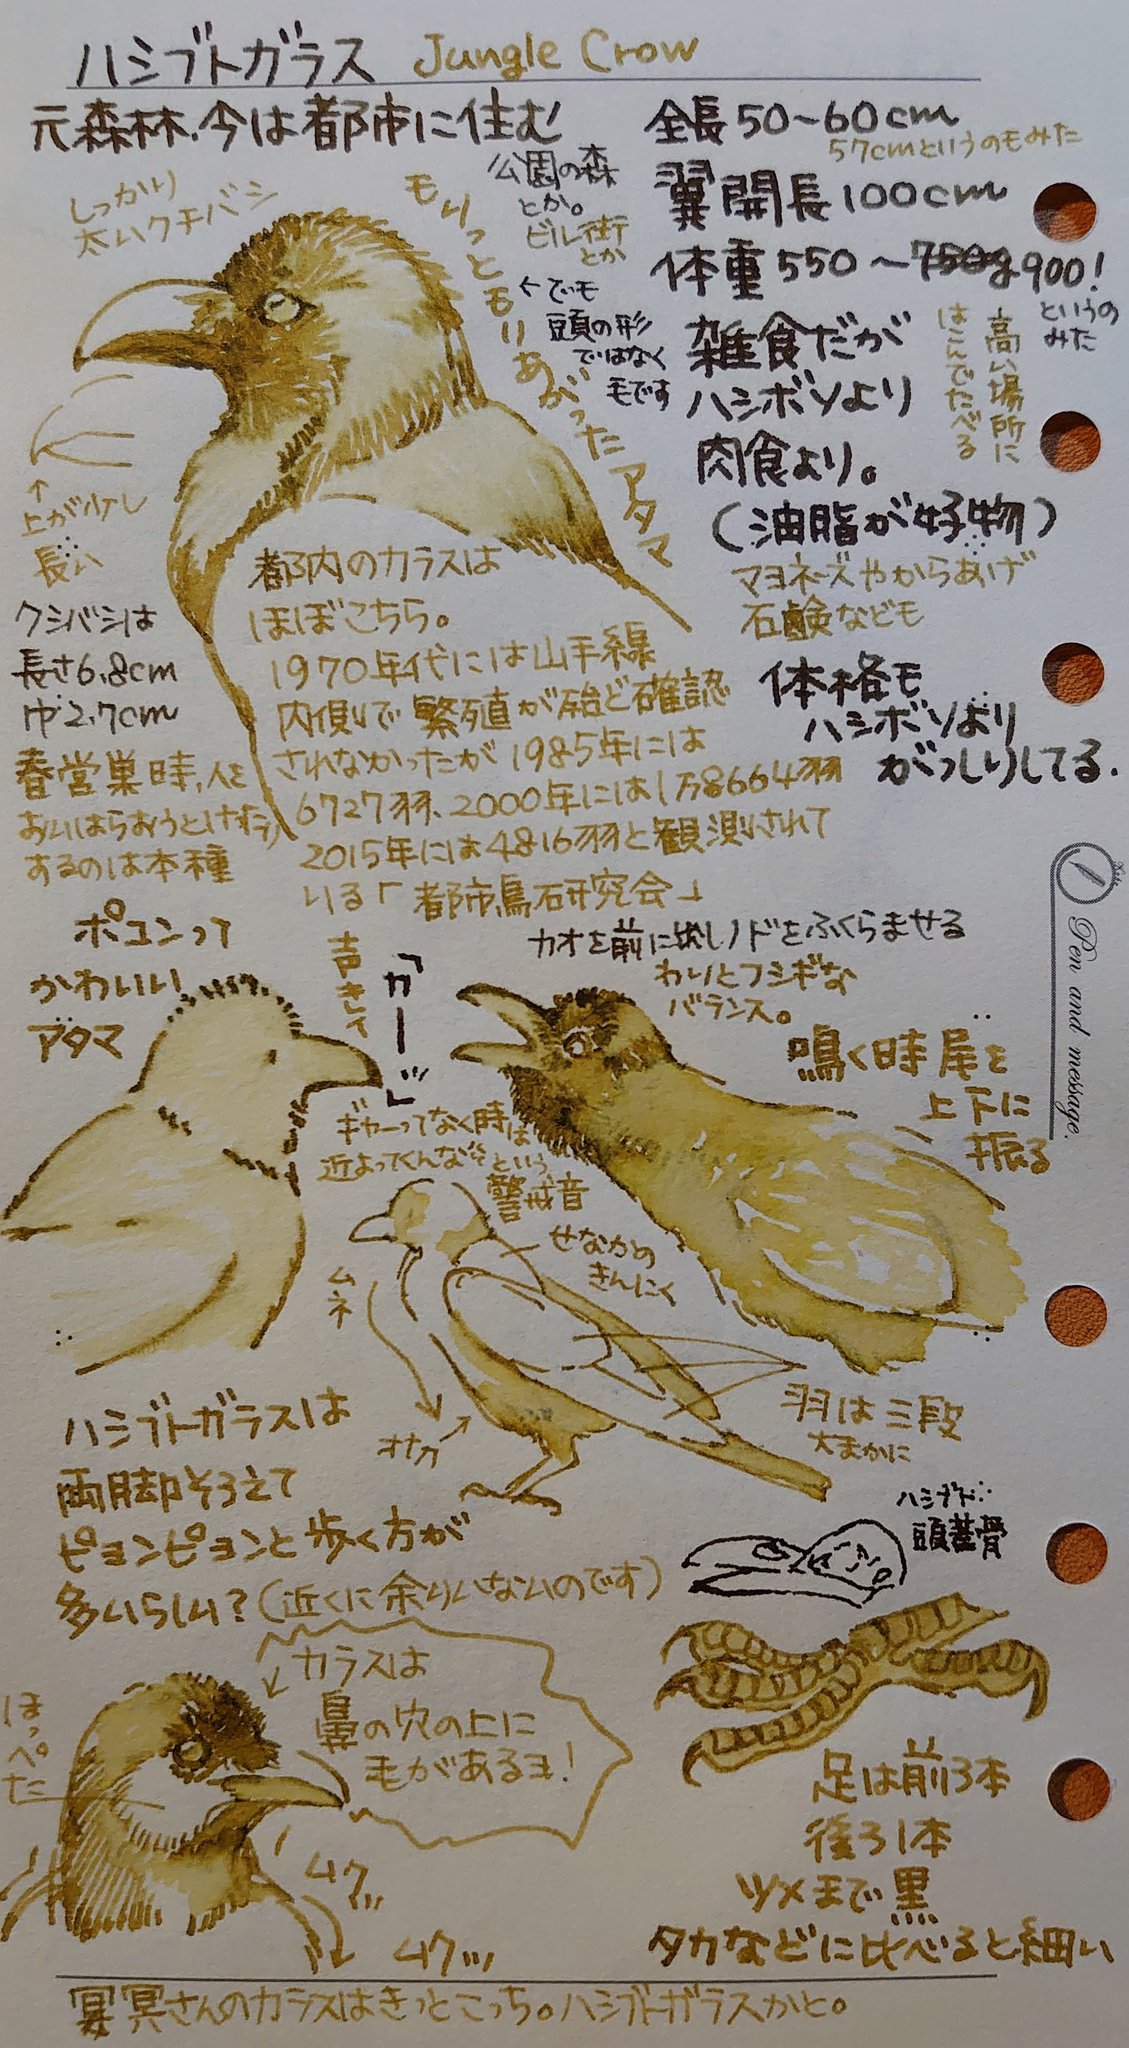 ハシブトガラス Jungle Crow
元森林、今は都市に住む
公園の森
とか。
ビル街
とか
全長 50～60cm
57cmというのもみた
翼開長 100cm
体重 550～750g 900!
というの
みた
しっかり
太いクチバシ
モリっともりあがったアタマ
←でモ
頭の形
ではなく
毛です
雑食だが
ハシボソより
肉食より。
(油脂が好物)
高い場所に
はこんでたべる
マヨネーズやからあげ
石鹸なども
↑
上が少し
長い
クシバシは
長さ6.8cm
巾2.7cm
体格モ
ハシボソより
がっしりしてる.
都内のカラスは
ほぼこちら。
1970年代には山手線
内側で繁殖が殆ど確認
されなかったが1985年には
6727羽、2000年には1万8664羽
2015年には4816羽と観測されて
いる「都市鳥研究会」
春営巣時、人を
おいはらおうとけ
するのは本種
ポコンって
かわいい
アタマ
声キレイ
「カーッ」
カオを前に出しノドをふくらませる
わりとフシギな
バランス。
鳴く時尾を
上下に
振る
ギャーってなく時は
近よってくんなぞという
警戒音
せなかの
きんにく
ムネ
オナカ
羽は三段
大まかに
Pen and message.
ハシブトガラスは
両脚そろえて
ピョンピョンと歩く方が
多いらしい?(近くに余りいないのです)
ハシブト
頭蓋骨
カラスは
鼻の穴の上に
毛があるヨ!
ほっぺた
ムクッ
ムクッ
足は前3本
後ろ1本
ツメまで黒
タカなどに比べると細い
冥さんのカラスはきっとこっち。ハシブトガラスかと。